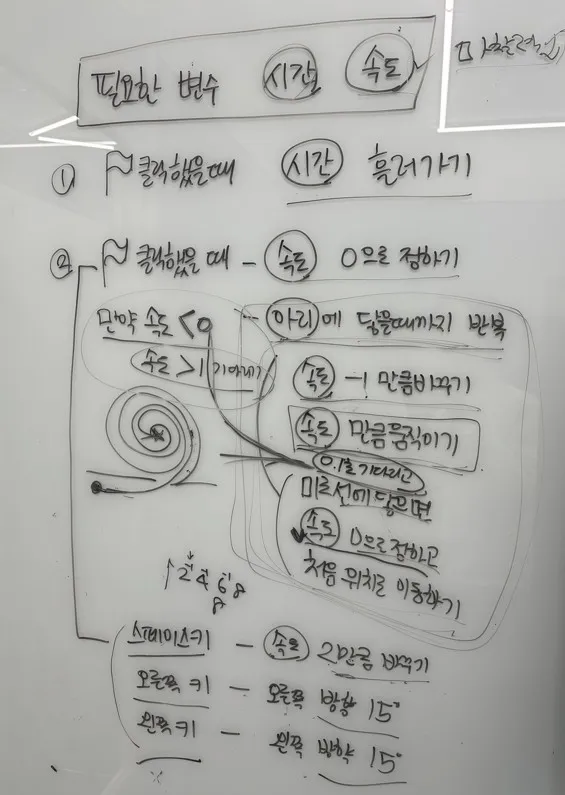 필요한 변수 시간 속도
① 클릭했을때 시간 흘러가기
② 클릭했을 때 - 속도 0으로 정하기
만약 속도 <0
속도 >1
아리에 닿을때까지 반복
속도 -1 만큼바꾸기
속도 만큼움직이기
0.1초 기다리고
미로선에닿으면
속도 0으로정하고
처음 위치로 이동하기
2 4 6 8
8
스페이스키 - 속도 2만큼 바꾸기
오른쪽 키 - 오른쪽 방향 15°
왼쪽 키 - 왼쪽 방향 15°